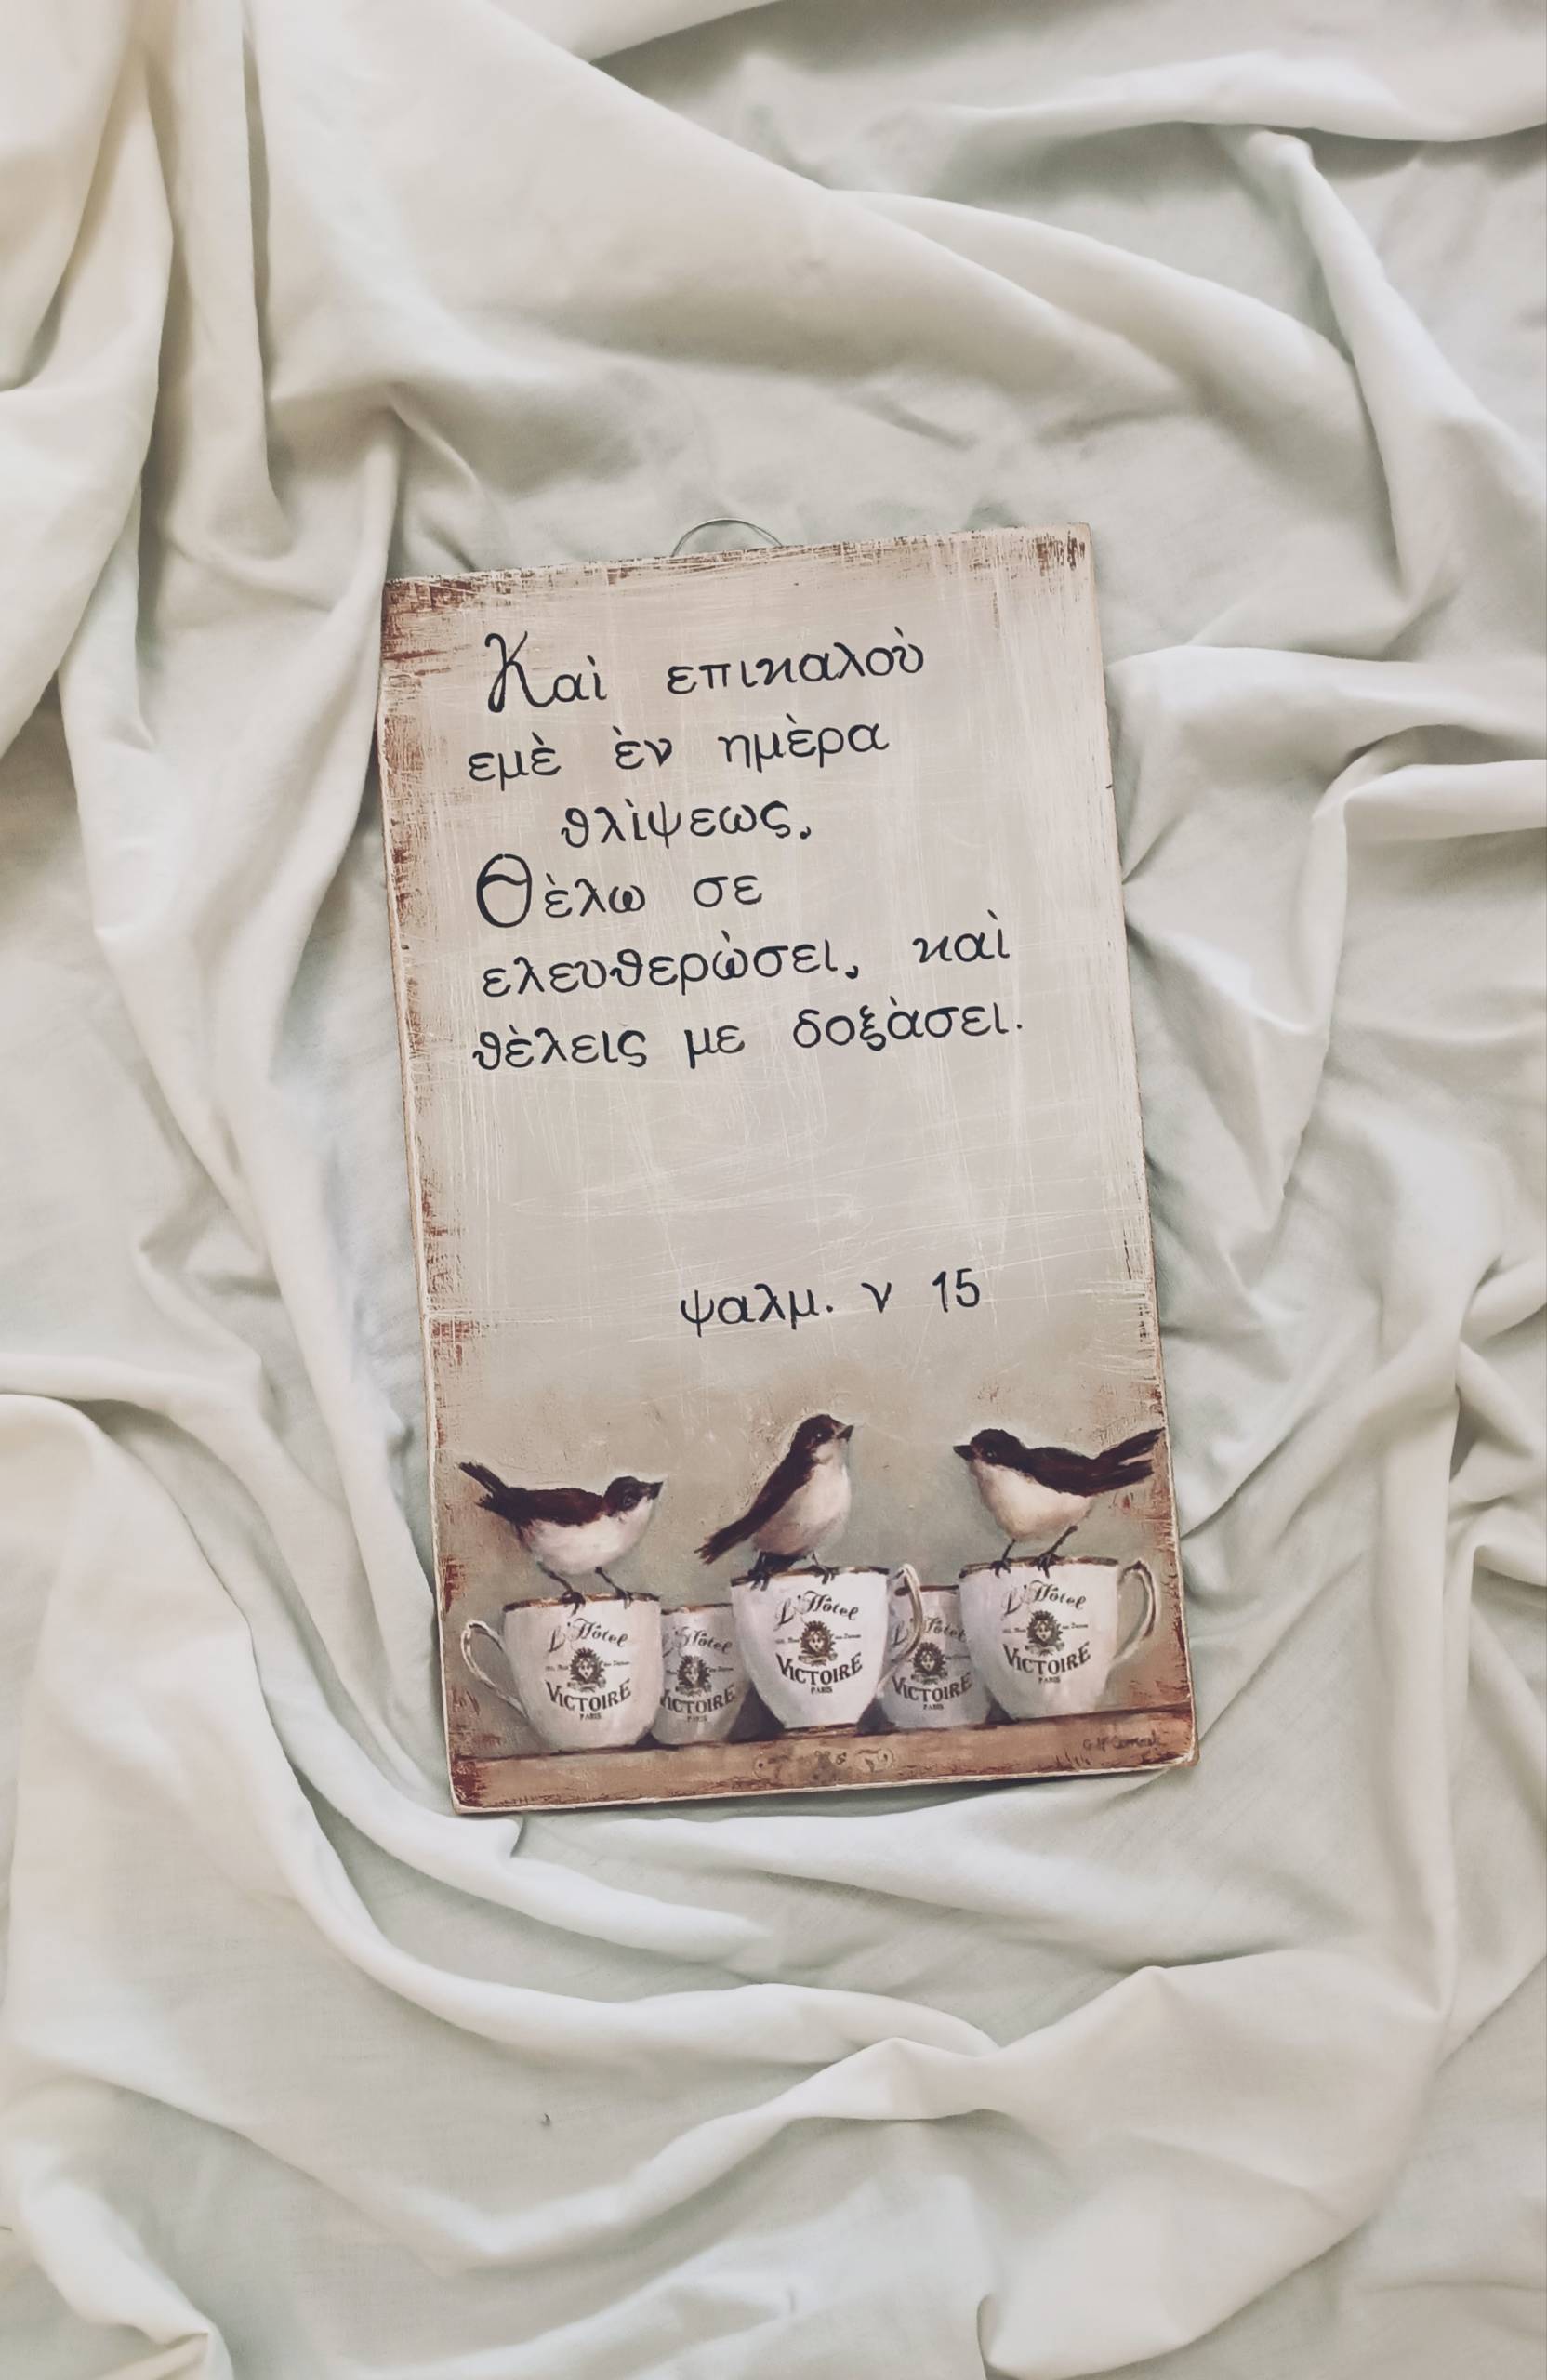 Καὶ επικαλοὺ
εμὲ ὲν ημὲρα
θλὶψεως,
Θὲλω σε
ελευθερὼσει, καὶ
θὲλεις με δοξὰσει.
ψαλμ. ν 15
L'Hôtel
VICTOIRE
PARIS
L'Hôtel
VICTOIRE
PARIS
L'Hôtel
VICTOIRE
PARIS
L'Hôtel
VICTOIRE
PARIS
L'Hôtel
VICTOIRE
PARIS